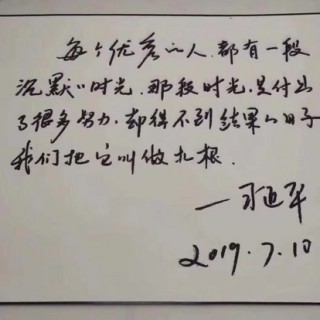 每个优秀的人.都有一段
沉默的时光.那段时光,是付出
了很多努力.却得不到结果的日子
我们把它叫做扎根.
—习近平
2019.7.10